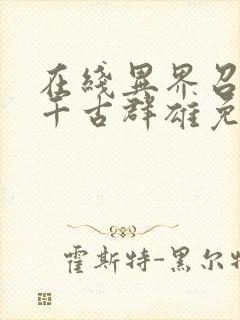 在綫異界召
千古群雄免
霍斯特-黑尔特